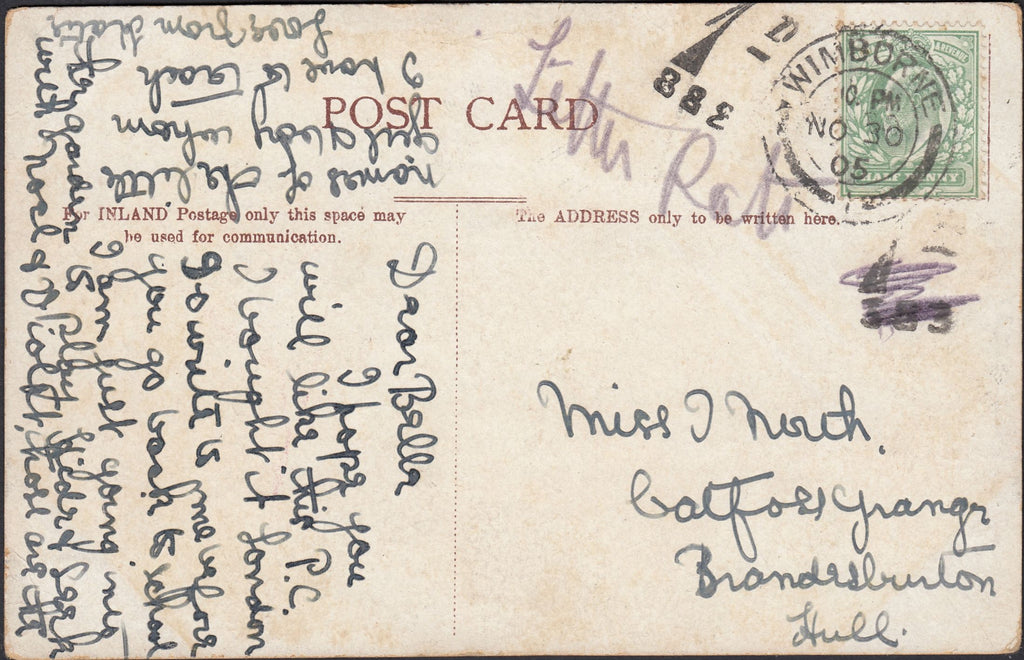 POST CARD
For INLAND Postage only this space may
be used for communication.
The ADDRESS only to be written here.
Letter
Rate
WIMBORNE
10. PM
NO 30
05
888
HALFPENNY
Dear Bella
I hope you
will like this P.C.
I bought it London
Do write to me before
you go back to school
I am just going in
garden to Play Hide & Seek
with Noel & Violet, those are the
names of the little
whom
I have to teach
Love from Katie
Miss I North,
Catfoss Grange
Brandesburton
Hull.